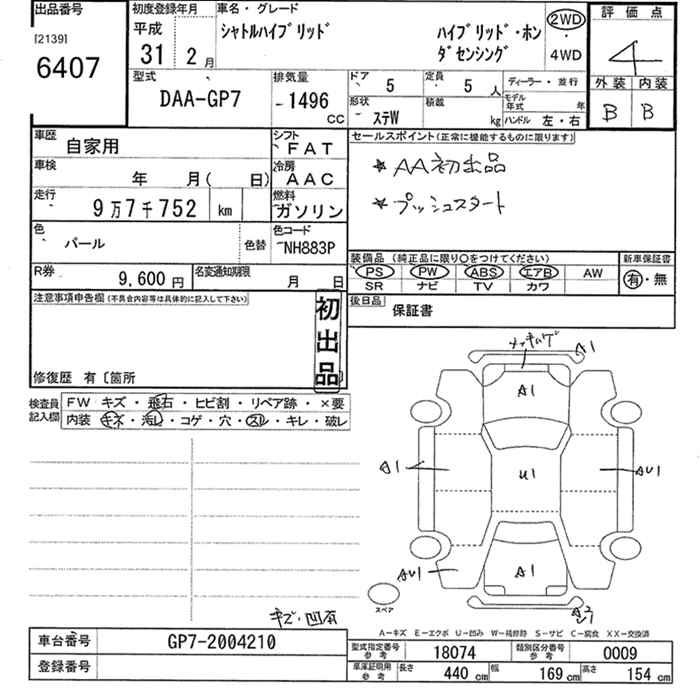 出品番号
[2139]
6407
初度登録年月
平成
31 2月
車名・グレード
シャトルハイブリッド
ハイブリッド・ホン
ダセンシング
2WD
4WD
評価点
4
外装 内装
B B
型式
DAA-GP7
排気量
1496
CC
ドア 5
定員 5人
ディーラー・並行
形状 ステW
積載 kg
モデル年式 年
ハンドル 左・右
車歴 自家用
シフト FAT
車検 年 月( 日)
冷房 AAC
走行 9万7千752 km
燃料 ガソリン
色 パール
色替
色コード NH883P
R券 9,600円
名変通知期限 月 日
セールスポイント(正常に機能するものに限ります)
★AA初出品
★プッシュスタート
装備品(純正品に限り○をつけてください)
新車保証書
PS PW ABS エアB AW
SR ナビ TV カワ
有・無
後日品 保証書
注意事項申告欄(不具合内容等は具体的に記入して下さい)
初出品
修復歴 有〔箇所 〕
検査員記入欄
FW キズ・飛石・ヒビ割・リペア跡・×要
内装 キズ・汚レ・コゲ・穴・スレ・キレ・破レ
A1
A1
A1
U1
AU1
AU1
A1
A2
スペア
キズ・凹有
A−キズ E−エクボ U−凹み W−補修跡 S−サビ C−腐食 XX−交換済
車台番号 GP7-2004210
登録番号
型式指定番号 参考 18074
類別区分番号 参考 0009
車庫証明用 参考 長さ 440cm 幅 169cm 高さ 154cm